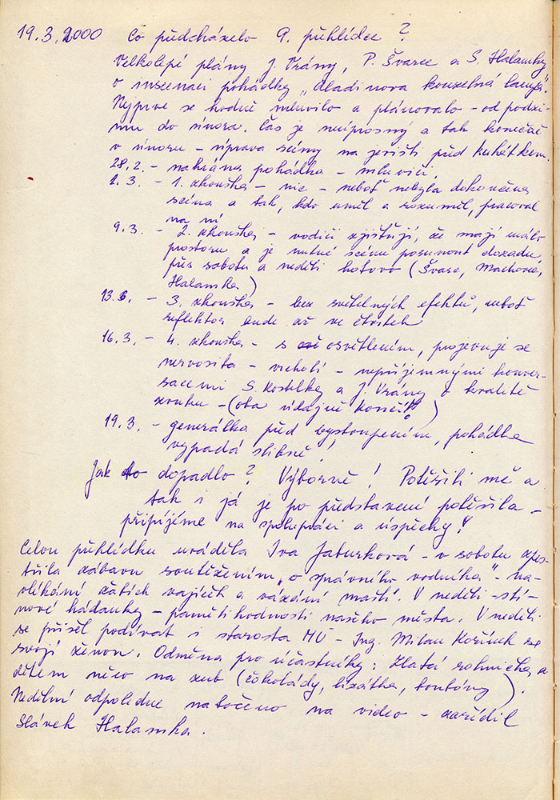 19.3.2000 Co předcházelo 9. přehlídce?
Velkolepé plány J. Vrány, P. Švarce a S. Halamky
o inscenaci pohádky "Aladinova kouzelná lampa".
Nejprve se hodně mluvilo a plánovalo - od podzi-
mu do února. Čas je neúprosný a tak končící
v únoru - úprava scény na jevišti před
28.2. - nahrána pohádka - mluviči.
2.3. - 1. zkouška - nic - neboť nebyla dokončena
scéna a tak, kdo uměl a rozuměl, pracoval
na ní
9.3. - 2. zkouška - vodiči zjišťují, že mají málo
prostoru a je nutné scénu posunout dozadu,
přes sobotu a neděli hotovo (Švarc, Machova,
Halamka)
13.3. - 3. zkouška - bez světelných efektů, neboť
reflektor bude až ve čtvrtek
16.3. - 4. zkouška - s osvětlením, projevuje se
nervosita - vrcholí - nepříjemnými konver-
sacemi S. Kostelky a J. Vrány o kvalitě
zvuku - (oba údajně končí!!)
19.3. - generálka před vystoupením, pohádka
vypadá slibně!
Jak to dopadlo? Výborně! Potěšili mě a
tak i já je po představení potěšila -
připíjíme na spolupráci a úspěchy!
Celou přehlídku uváděla Iva Jaturková - v sobotu zpes-
třila zábavu soutěžením "o správného vodníka" - na-
vlékání žabích vajíček a vázání mašlí. V neděli - stí-
nové hádanky - pamětihodnosti našeho města. V neděli
se přišel podívat i starosta MÚ - Ing. Milan Kořínek se
svojí ženou. Odměna pro účastníky: Zlatá rolnička a
dětem něco na zub (čokolády, lízátka, bonbóny).
Nedělní odpoledne natočeno na video - zařídil
Slávek Halamka.